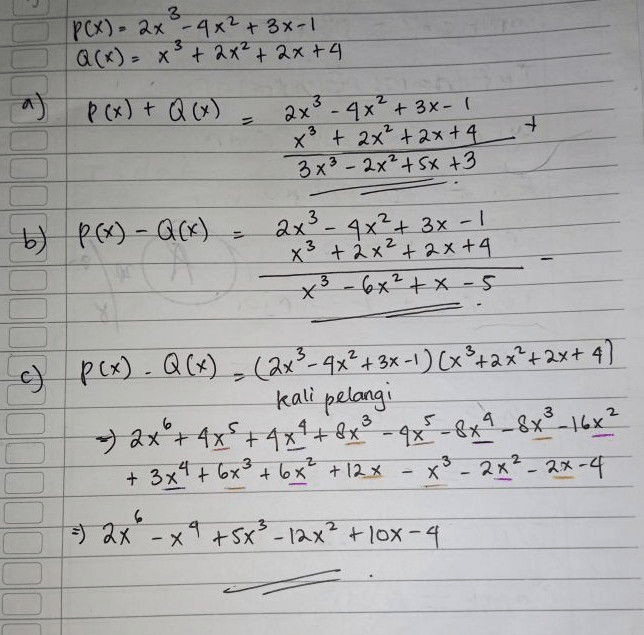 P(x) = 2x³ - 4x² + 3x - 1
Q(x) = x³ + 2x² + 2x + 4
a) P(x) + Q(x) = 2x³ - 4x² + 3x - 1
x³ + 2x² + 2x + 4 +
3x³ - 2x² + 5x + 3
b) P(x) - Q(x) = 2x³ - 4x² + 3x - 1
x³ + 2x² + 2x + 4 -
x³ - 6x² + x - 5
c) P(x) . Q(x) = (2x³ - 4x² + 3x - 1)(x³ + 2x² + 2x + 4)
kali pelangi
⇒ 2x⁶ + 4x⁵ + 4x⁴ + 8x³ - 4x⁵ - 8x⁴ - 8x³ - 16x²
+ 3x⁴ + 6x³ + 6x² + 12x - x³ - 2x² - 2x - 4
⇒ 2x⁶ - x⁴ + 5x³ - 12x² + 10x - 4